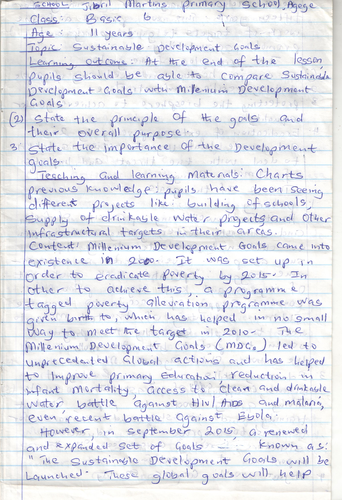 School Jibril Martins primary School, Agege
Class: Basic 6
Age: 11 years
Topic Sustainable Development Goals
Learning outcome: At the end of the lesson,
pupils should be able to compare Sustainable
Development Goals with Millenium Development
Goals
(2) State the principle of the goals and
their overall purpose
3 State the importance of the Development
goals
Teaching and learning materials: Charts
previous knowledge: pupils have been seeing
different projects like building of schools,
supply of drinkable water projects and other
infrastructural targets in their areas.
Content: Millenium Development Goals came into
existence in 2000. It was set up in
order to eradicate poverty by 2015. In
other to achieve this, a programme
tagged poverty alleviation programme was
given birth to, which has helped in no small
way to meet the target in 2010. The
Millenium Development Goals (MDGs) led to
unprecedented Global actions and has helped
to improve primary Education, reduction in
infant mortality, access to clean and drinkable
water battle against HIV/AIDS and malaria,
even recent battle against Ebola.
However, in september 2015, a renewed
and expanded set of Goals - known as:
"The Sustainable Development Goals will be
launched. These global goals will help